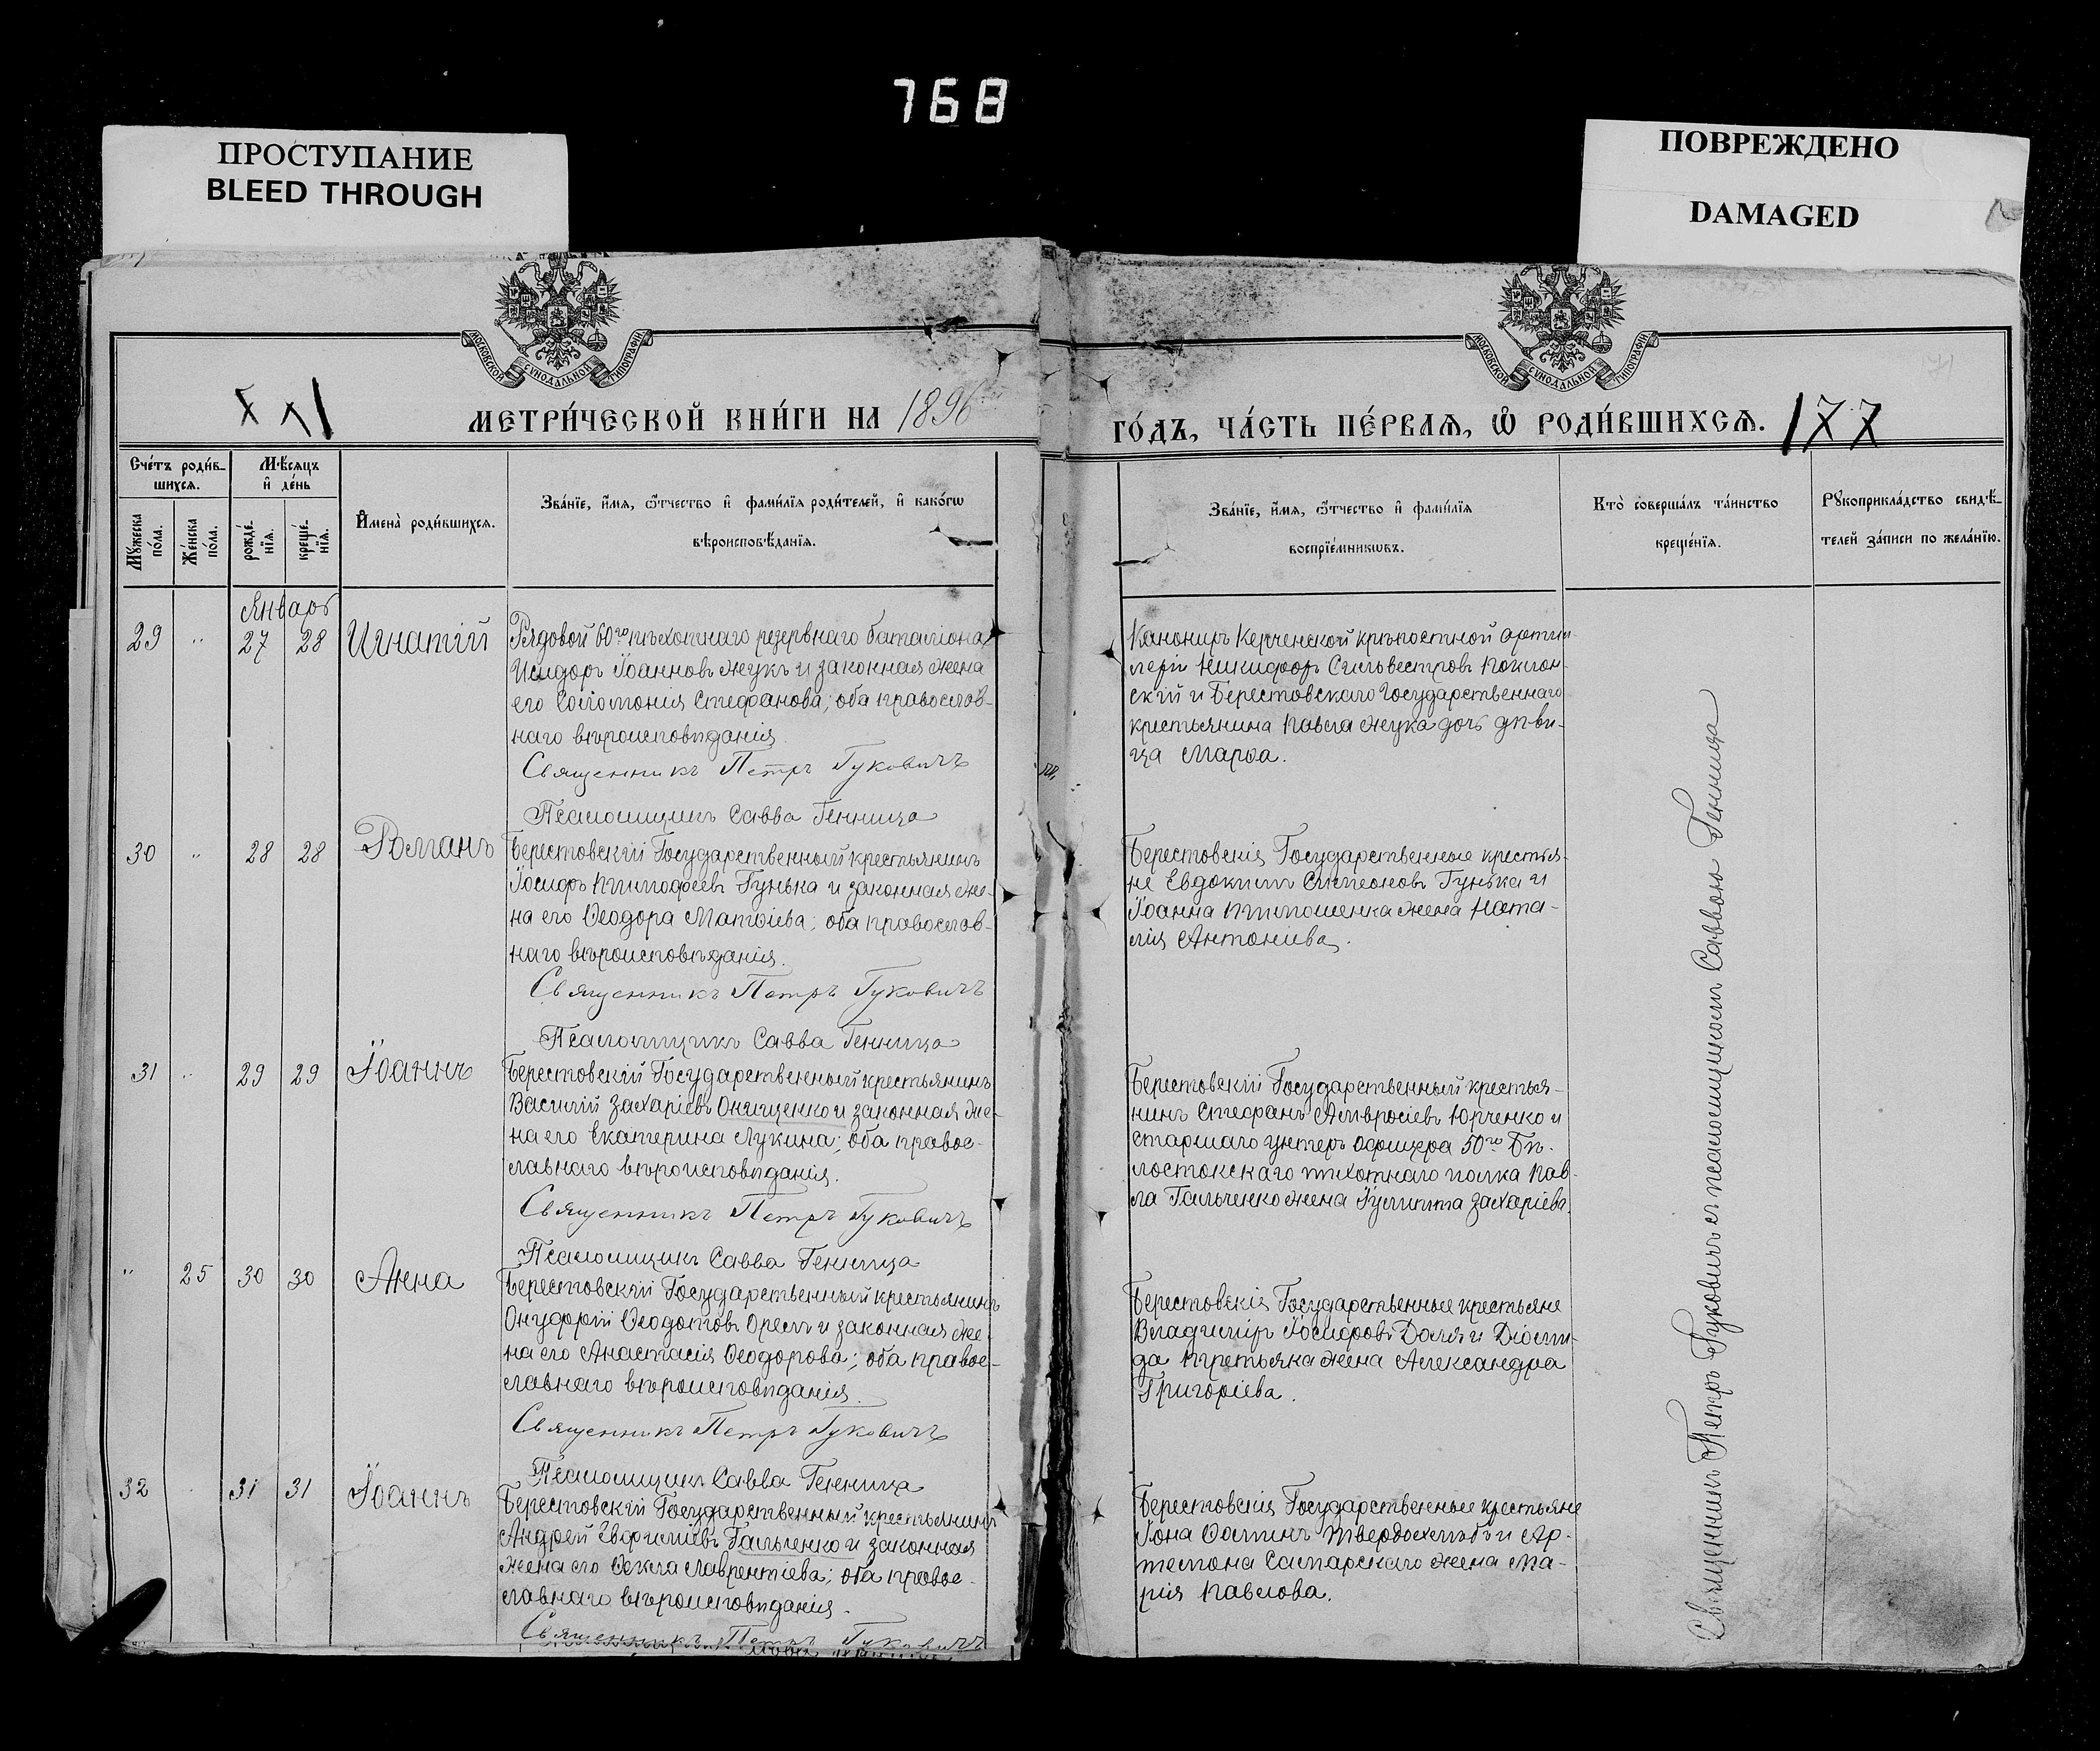 768
ПРОСТУПАНИЕ
BLEED THROUGH
ПОВРЕЖДЕНО
DAMAGED
МОСКОВСКОЙ СѴНОДАЛЬНОЙ ТИПОГРАФІИ
МОСКОВСКОЙ СѴНОДАЛЬНОЙ ТИПОГРАФІИ
МЕТРИ́ЧЕСКОЙ КНИ́ГИ НА 1896
ГО́ДЪ, ЧА́СТЬ ПЕ́РВАЯ, Ѽ РОДИ́ВШИХСЯ. 177
Сче́тъ роди́в-
шихся.
Мѣ́сяцъ
и҆ де́нь
Мꙋ́жеска
по́ла.
Же́нска
по́ла.
рожде́-
нїя.
креще́-
нїя.
И҆мена̀ роди́вшихся.
Зва́нїе, и҆́мя, ѻ҆́тчество и҆ фами́лїя роди́телей, и҆ како́гѡ
вѣроисповѣ́данїя.
Зва́нїе, и҆́мя, ѻ҆́тчество и҆ фами́лїя
воспрїе́мникѡвъ.
Кто̀ соверша́лъ та́инство
креще́нїя.
Рꙋкоприкла́дство свидѣ́-
телей за́писи по жела́нїю.
Январь
29 " 27 28 Игнатій
Рядовой 60го пѣхотнаго резервнаго баталіона
Исидоръ Іоанновъ Жукъ и законная жена
его Соломонія Стефанова; оба православ-
наго вѣроисповѣданія.
Священникъ Петръ Гуковичъ
Псаломщикъ Савва Геннища
Канониръ Керченской крѣпостной артил-
леріи Никифоръ Сильвестровъ Поклон-
скій и Берестовскаго Государственнаго
крестьянина Павла Жука дочь дѣви-
ца Марѳа.
30 " 28 28 Романъ
Берестовскій Государственный крестьянинъ
Іосифъ Тимофеевъ Гунька и законная же-
на его Ѳеодора Матѳіева; оба православ-
наго вѣроисповѣданія.
Священникъ Петръ Гуковичъ
Псаломщикъ Савва Геннища
Берестовскія Государственные крестья-
не Евдокимъ Симеоновъ Гунька и
Іоанна Тимошенка жена Ната-
лія Антоніева.
31 " 29 29 Іоаннъ
Берестовскій Государственный крестьянинъ
Василій Захаріевъ Онищенко и законная же-
на его Екатерина Лукина; оба право-
славнаго вѣроисповѣданія.
Священникъ Петръ Гуковичъ
Псаломщикъ Савва Геннища
Берестовскій Государственный крестья-
нинъ Стефанъ Амвросіевъ Юрченко и
старшаго унтеръ офицера 50го Бѣ-
лостокскаго пѣхотнаго полка Пав-
ла Гальченко жена Іулитта Захаріева.
" 25 30 30 Анна
Берестовскій Государственный крестьянинъ
Онуфрій Ѳеодотовъ Орелъ и законная же-
на его Анастасія Ѳеодорова; оба право-
славнаго вѣроисповѣданія.
Священникъ Петръ Гуковичъ
Псаломщикъ Савва Геннища
Берестовскія Государственные крестьяне
Владиміръ Іосифовъ Доля и Діоми-
да Третьяка жена Александра
Григоріева.
32 31 31 Іоаннъ
Берестовскій Государственный крестьянинъ
Андрей Евфиміевъ Гальченко и законная
жена его Ѳекла Лаврентіева; оба право-
славнаго вѣроисповѣданія.
Священникъ Петръ Гуковичъ
Берестовскія Государственные крестьяне
Іона Ѳоминъ Твердохлѣбъ и Ар-
темона Самарскаго жена Ма-
рія Павлова.
Священникъ Петръ Гуковичъ съ псаломщикомъ Саввою Геннища